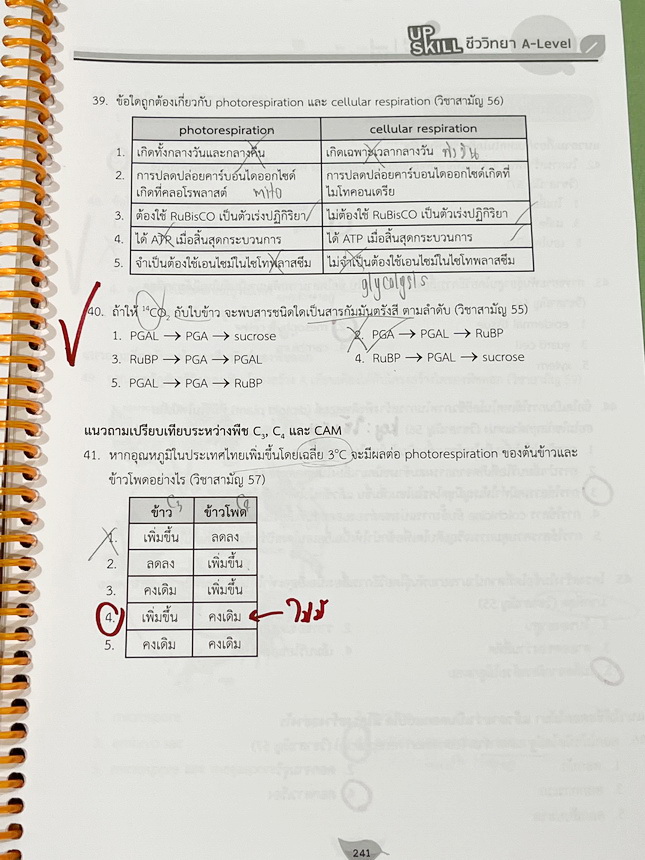 UP SKILL ชีววิทยา A-Level
39. ข้อใดถูกต้องเกี่ยวกับ photorespiration และ cellular respiration (วิชาสามัญ 56)
photorespiration cellular respiration
1. เกิดทั้งกลางวันและกลางคืน เกิดเฉพาะเวลากลางวัน
2. การปลดปล่อยคาร์บอนไดออกไซด์ การปลดปล่อยคาร์บอนไดออกไซด์เกิดที่
เกิดที่คลอโรพลาสต์ mito ไมโทคอนเดรีย
3. ต้องใช้ RuBisCO เป็นตัวเร่งปฏิกิริยา ไม่ต้องใช้ RuBisCO เป็นตัวเร่งปฏิกิริยา
4. ได้ ATP เมื่อสิ้นสุดกระบวนการ ได้ ATP เมื่อสิ้นสุดกระบวนการ
5. จำเป็นต้องใช้เอนไซม์ในไซโทพลาสซึม ไม่จำเป็นต้องใช้เอนไซม์ในไซโทพลาสซึม
glycolysis
40. ถ้าให้ ¹⁴CO₂ กับใบข้าว จะพบสารชนิดใดเป็นสารกัมมันตรังสี ตามลำดับ (วิชาสามัญ 55)
1. PGAL → PGA → sucrose 2. PGA → PGAL → RuBP
3. RuBP → PGA → PGAL 4. RuBP → PGAL → sucrose
5. PGAL → PGA → RuBP
แนวถามเปรียบเทียบระหว่างพืช C₃, C₄ และ CAM
41. หากอุณหภูมิในประเทศไทยเพิ่มขึ้นโดยเฉลี่ย 3°C จะมีผลต่อ photorespiration ของต้นข้าวและ
ข้าวโพดอย่างไร (วิชาสามัญ 57)
ข้าว C3 ข้าวโพด C4
1. เพิ่มขึ้น ลดลง
2. ลดลง เพิ่มขึ้น
3. คงเดิม เพิ่มขึ้น
4. เพิ่มขึ้น คงเดิม ← ไม่มี
5. คงเดิม คงเดิม
241